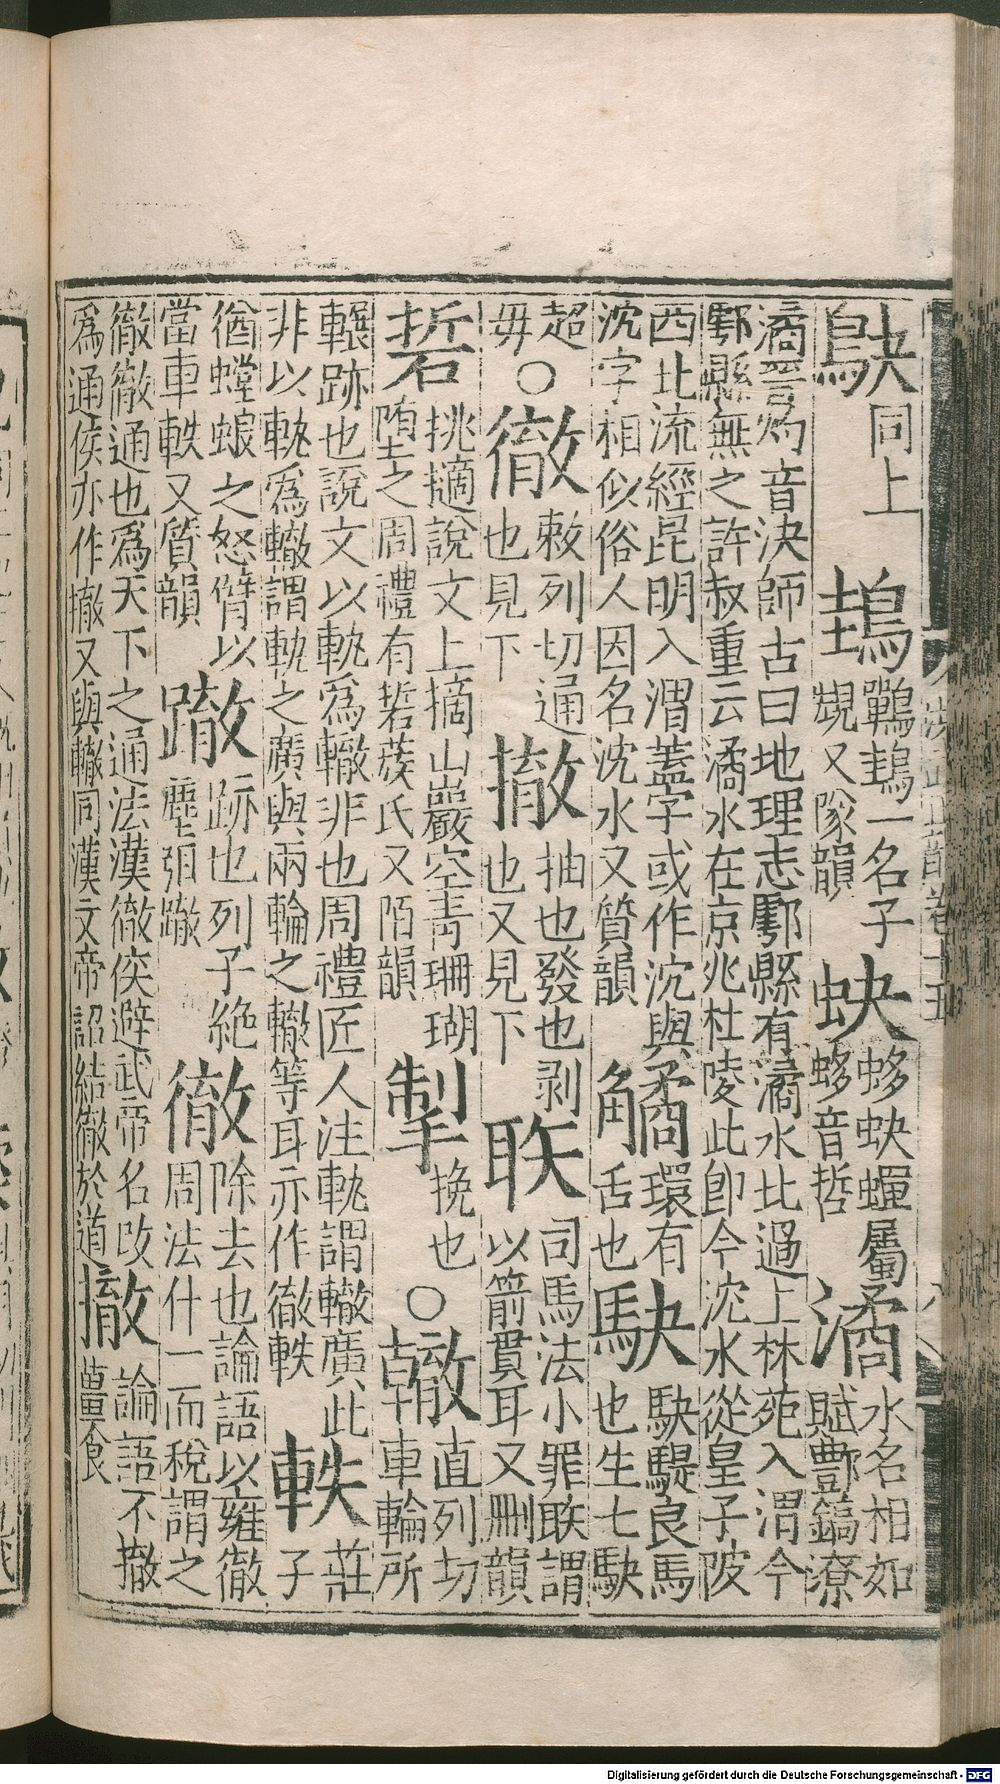 洪武正韻卷十五
鴃同上䳏鷤䳏一名子
䂓又隊韻蚗蛥蚗蟬屬
蛥音哲潏水名相如
賦酆鎬潦
潏晉灼音決師古曰地理志鄠縣有潏水北過上林苑入渭今
鄠縣無之許叔重云潏水在京兆杜陵此即今沈水從皇子陂
西北流經昆明入渭蓋字或作沈與
沈字相似俗人因名沈水又質韻
環有
舌也駃駃騠良馬
也生七駃
超
毋○徹敕列切通
也見下撤抽也發也剥
也又見下聅司馬法小罪聅謂
以箭貫耳又刪韻
硩挑擿說文上摘山巖空青珊瑚
墮之周禮有硩蔟氏又陌韻掣挽也○轍直列切
車輪所
輾跡也說文以軌爲轍非也周禮匠人注軌謂轍廣此
非以軌爲轍謂軌之廣與兩輪之轍等耳亦作徹軼軼莊
子
猶螳蜋之怒臂以
當車軼又質韻𨅊跡也列子絶
塵弭𨅊徹除去也論語以雍徹
周法什一而稅謂之
徹徹通也爲天下之通法漢徹侯避武帝名改
爲通侯亦作撤又與轍同漢文帝詔結徹於道撤論語不撤
薑食
Digitalisierung gefördert durch die Deutsche Forschungsgemeinschaft - DFG